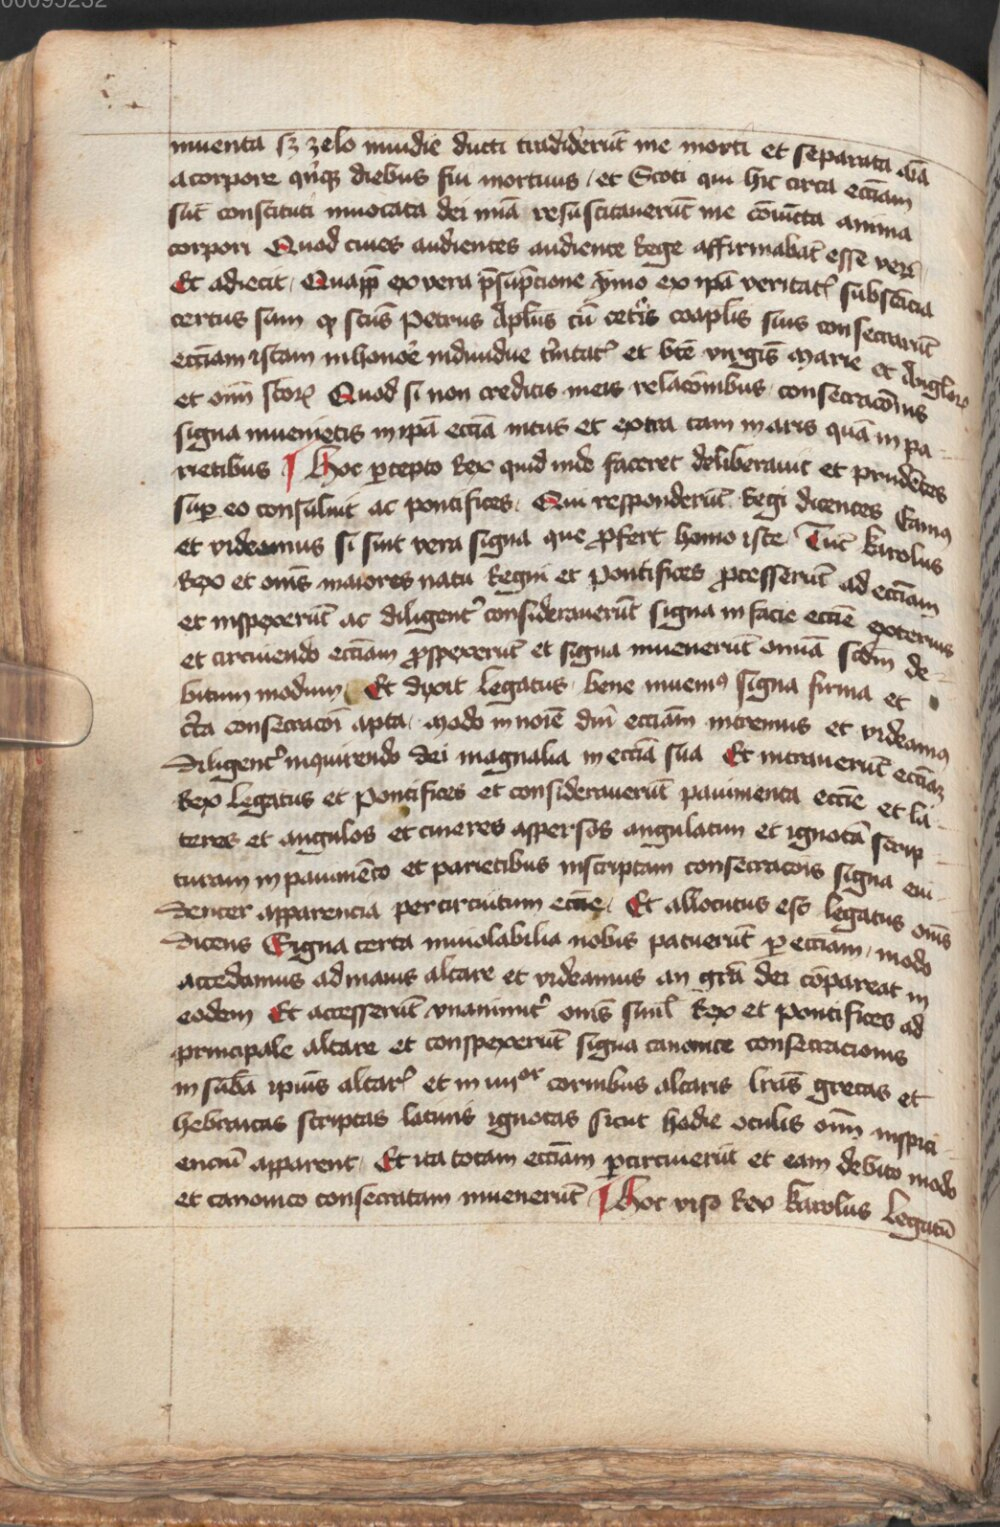 00095232
inuenta sz zelo inuidie ducti tradiderūt me morti et separata aīa
a corpore qn̄qz diebus fui mortuus / et Scoti qui hic circa eccīam
sūt constituti inuocata dei mīa resuscitauerūt me cōiūcta anima
corpori Quod ciues audientes audiente Rege affirmabāt esse verū
Et adiecit / Quapp̄ ex vera p̄sūpcione ymo ex ip̄a veritate substācia
certus sum qꝫ sc̄us Petrus Aplūs cū cetīs coaplīs suis consecrarūt
eccīam istam in honorē indiuidue tīnitatꝭ et btē virgīs Marie et Angloꝝ
et oīm scōꝝ Quod si non creditis meis relacōnibus / consecracōnis
signa inuenietis in ip̄a eccīa intus et extra tam in aris quā in pa-
rietibus ¶ Hoc ꝑcepto Rex quid inde faceret deliberauit et prudētes
suꝑ eo consuluit ac pontifices / Qui responderūt Regi dicentes Eamꝰ
et videamus si sint vera signa que ꝓfert homo iste / Tūc karolus
Rex et om̄s maiores natu Regni et Pontifices ꝓcesserūt ad eccīam
et inspexerūt ac diligentꝰ considerauerūt signa in facie eccīe exterius
et circuiendo eccīam ꝓspexerūt et signa inuenerūt om̄ia scd̄m de-
bitum modum Et dixit legatus / bene inuenimꝰ signa firma et
c̄ta consecracōi apta / modo in noīe dnī eccīam intremus et videamus
diligentꝰ inquirendo dei magnalia in eccīa sua Et intrauerūt eccīaz
Rex legatus et Pontifices et considerauerūt pauimenta eccīe et la-
teres et angulos et cineres aspersos angulatim et ignotā scrip-
turam in pauimēto et parietibus inscriptam consecracōis signa eui-
denter apparencia per circuitum eccīe / Et allocutus est legatus om̄s
dicens Signa certa inuiolabilia nobis patuerūt ꝑ eccīam / modo
accedamus ad maius altare et videamus an grā dei cōpareat in
eodem Et accesserūt vnanimitꝰ om̄s simul Rex et Pontifices ad
principale altare et conspexerūt signa canonice consecracionis
in sub̄a ipius altarꝭ et in iiijor cornibus altaris lrās grecas et
hebraicas scriptas latinis ignotas sicut hodie oculis oīm inspici-
enciū apparent / Et ita totam eccīam ꝑcircuierūt et eam debito modo
et canonico consecratam inuenerūt ¶ Hoc viso Rex karolus legatū